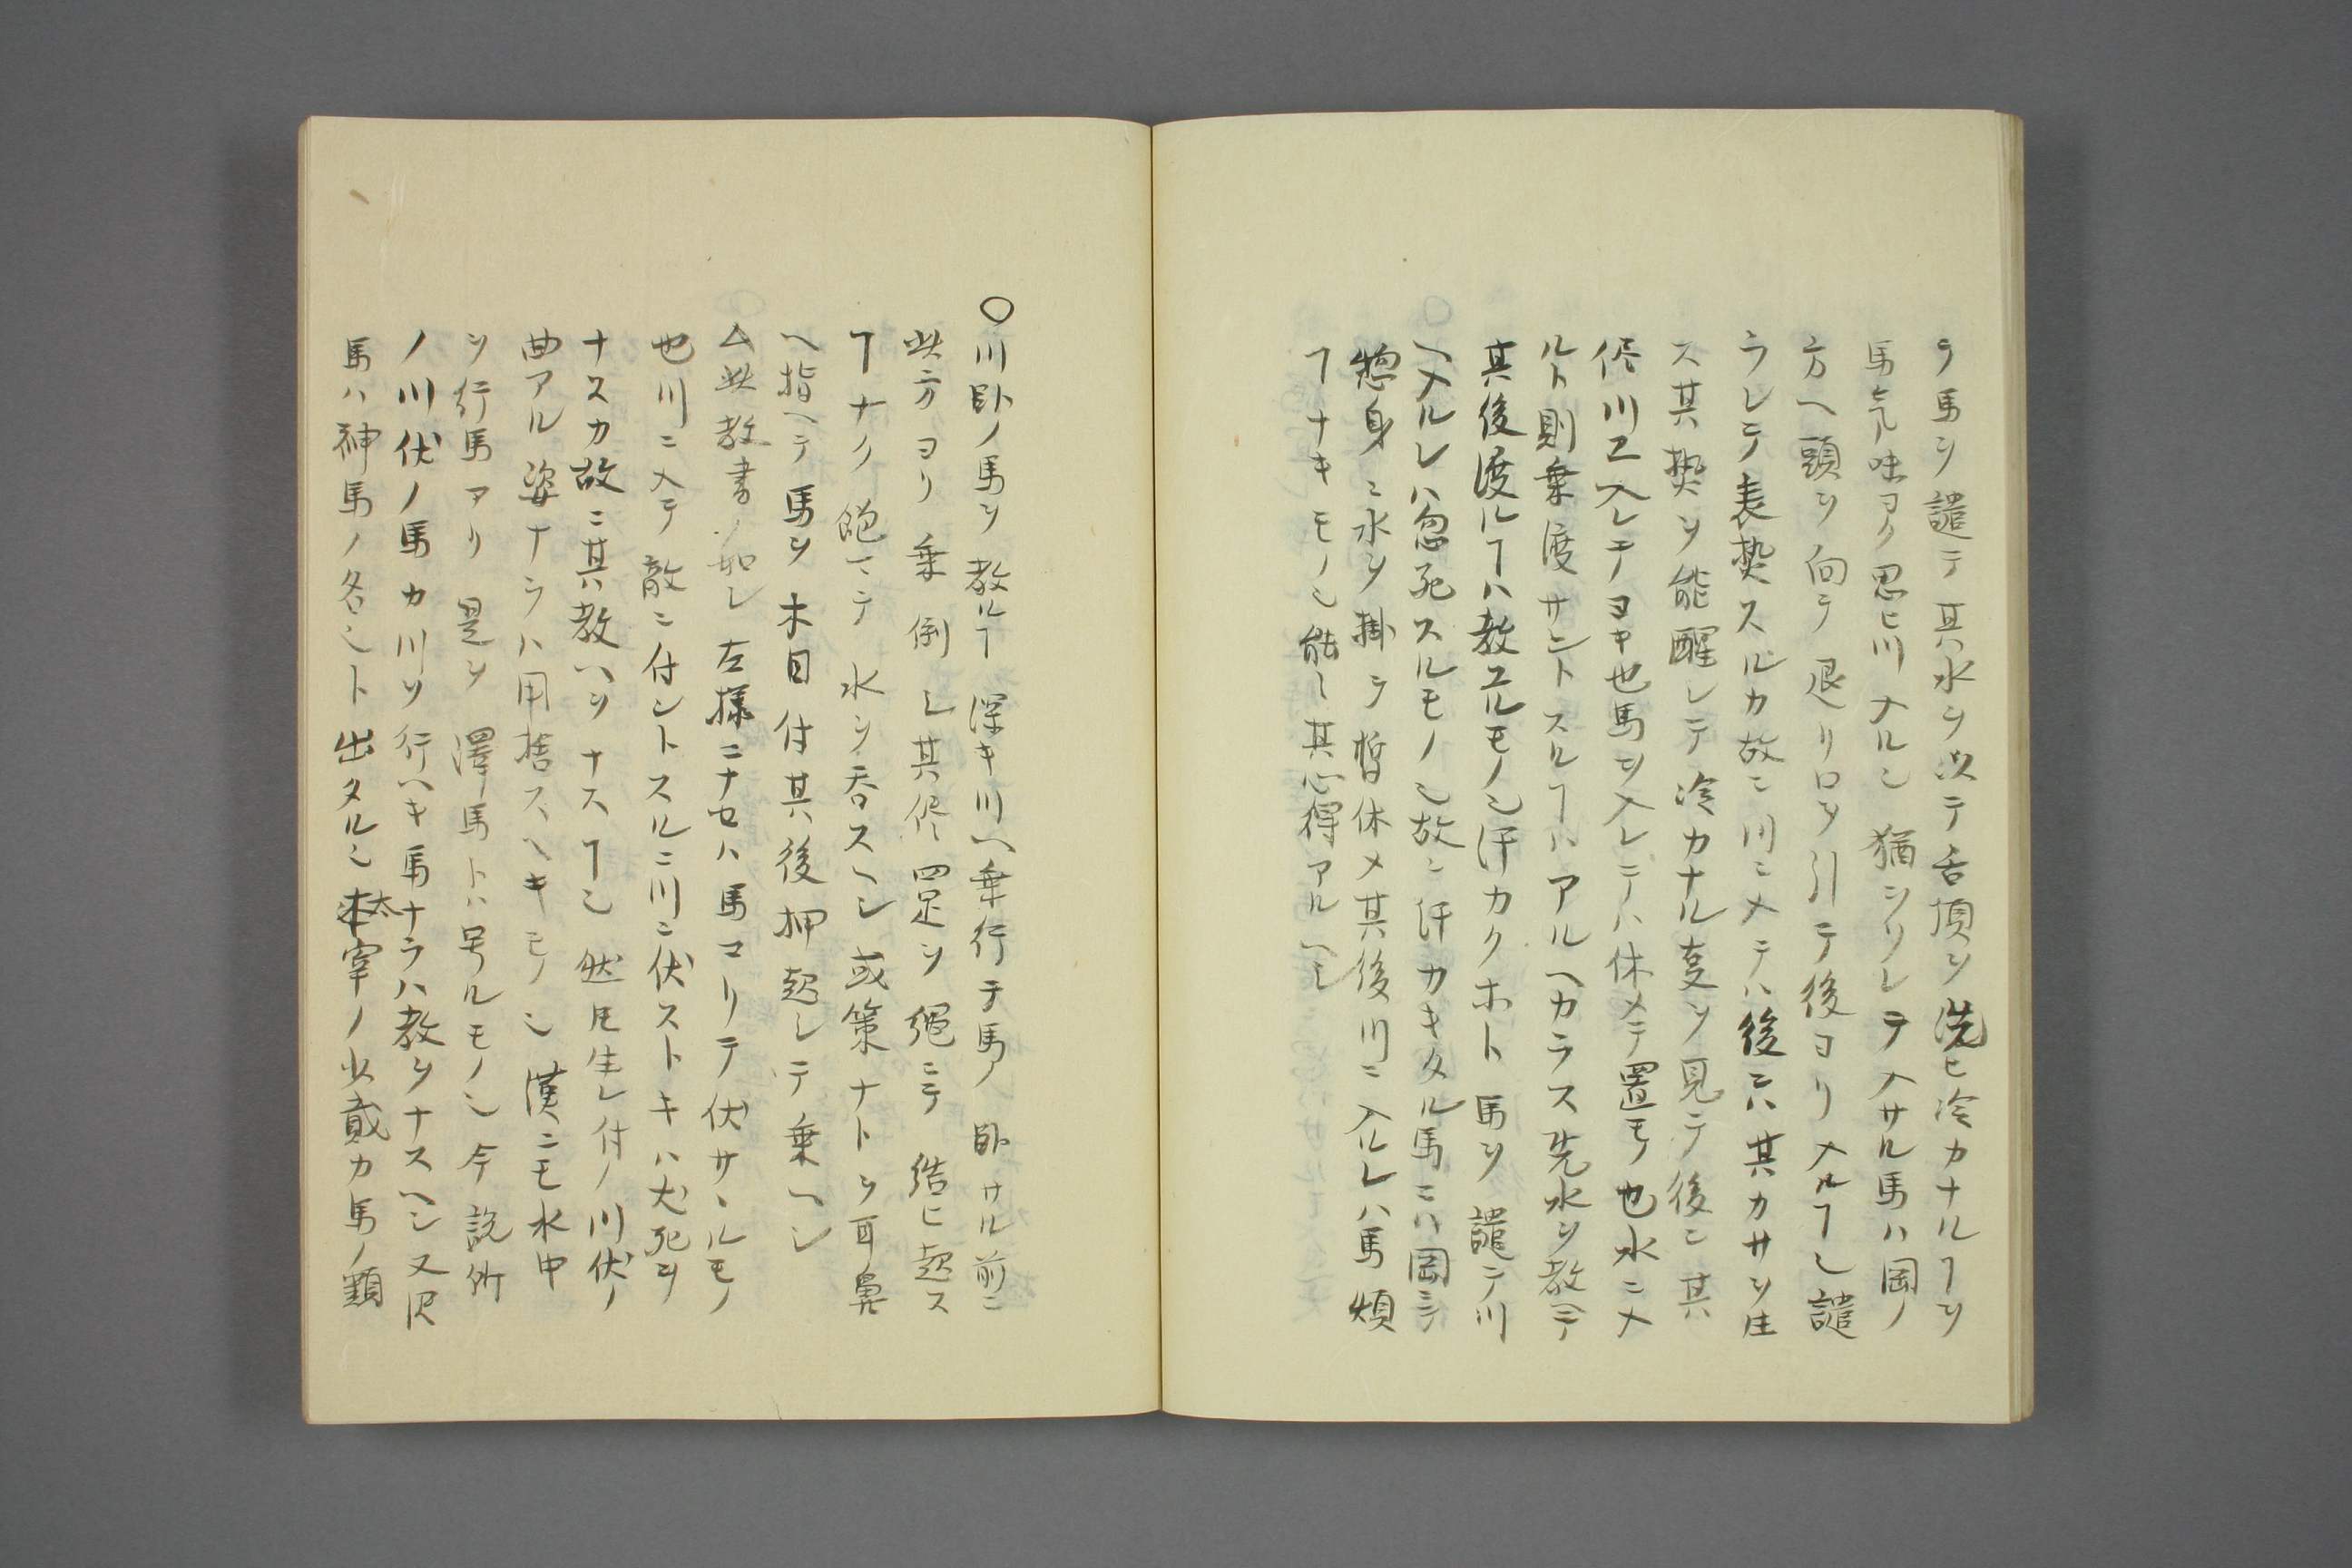 テ馬ヲ譴テ其水ヲ以テ舌頂ヲ洗ヒ冷カナルヿヲ
馬気味ヨク思ヒ川ナルシ猶ソリレテ入サル馬ハ岡ノ
方ヘ頭ヲ向テ退リ口ヲ引テ後ヨリ入ルヿシ譴
ラレテ表㷫スルカ故ニ川ニ入テハ後ニハ其カサヲ生
ス其㷫ヲ能醒シテ冷カナル変ヲ見テ後ニ其
侭川エ入レテヨキ也馬ヲ入レテハ休メテ置モノ也水ニ入
ルト則乗渡サントスルヿハアルヘカラス先水ヲ教ヘテ
其後渡ルヿハ教エルモノ也汗カクホト馬ヲ譴テ川
ヘ入ルレハ忽死スルモノ也故ニ汗カキタル馬ニハ岡ニテ
惣身ニ水ヲ掛ラ暫休メ其後川ニ入ルレハ馬煩
ヿナキモノ也能々其心得アルヘシ
〇川卧ノ馬ヲ教ルヿ深キ川ヘ乗行テ馬ノ卧サル前ニ
此方ヨリ乗倒シ其侭四足ヲ縄ニテ結ヒ起ス
ヿナク飽マテ水ヲ呑スヘシ或策ナトヲ耳鼻
ヘ指ヘテ馬ヲ木目付其後押起シテ乗ヘシ
△此教書ノ如シ左様ニナセハ馬コリテ伏サヽルモノ
也川ニ入テ敵ニ付ントスルニ川ニ伏ストキハ犬死ヲ
ナスカ故ニ其教ヘヲナスヿ也然𪜈生レ付ノ川伏ノ
曲アル姿ナラハ用捨スヘキモノ也漢ニモ水中
ヲ行馬アリ是ヲ澤馬トハ号ルモノ也今説所
ノ川伏ノ馬カ川ヲ行ヘキ馬ナラハ教ヲナスヘシ又沢
馬ハ神馬ノ名也ト出タル也太宰ノ少貳カ馬ノ類